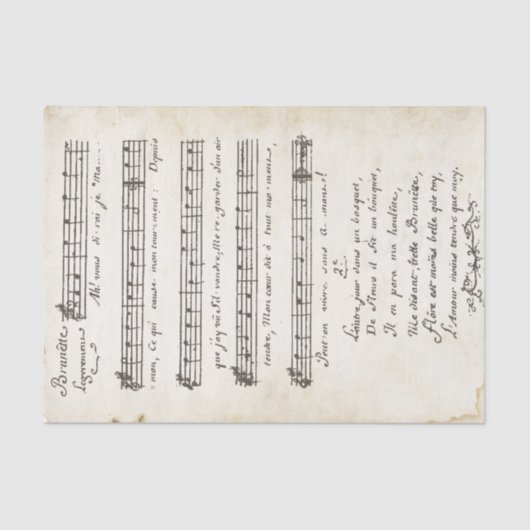 Brunêtte
Legerement
Ah! vous di-rai je Ma....
mon, Ce qui cause mon tourment: Depuis
que j'ay vû Sil-vandre, Me re-garder d'un air
tendre, Mon cœur dit à tout mo-ment,
Peut-on vivre sans a-ment!
2e
L'autre jour dans un bosquet,
De fleurs il fit un bouquet,
Il en para ma houlêtte,
Me disant, belle Brunêtte,
Flore est moins belle que toy,
L'Amour moins tendre que moy.